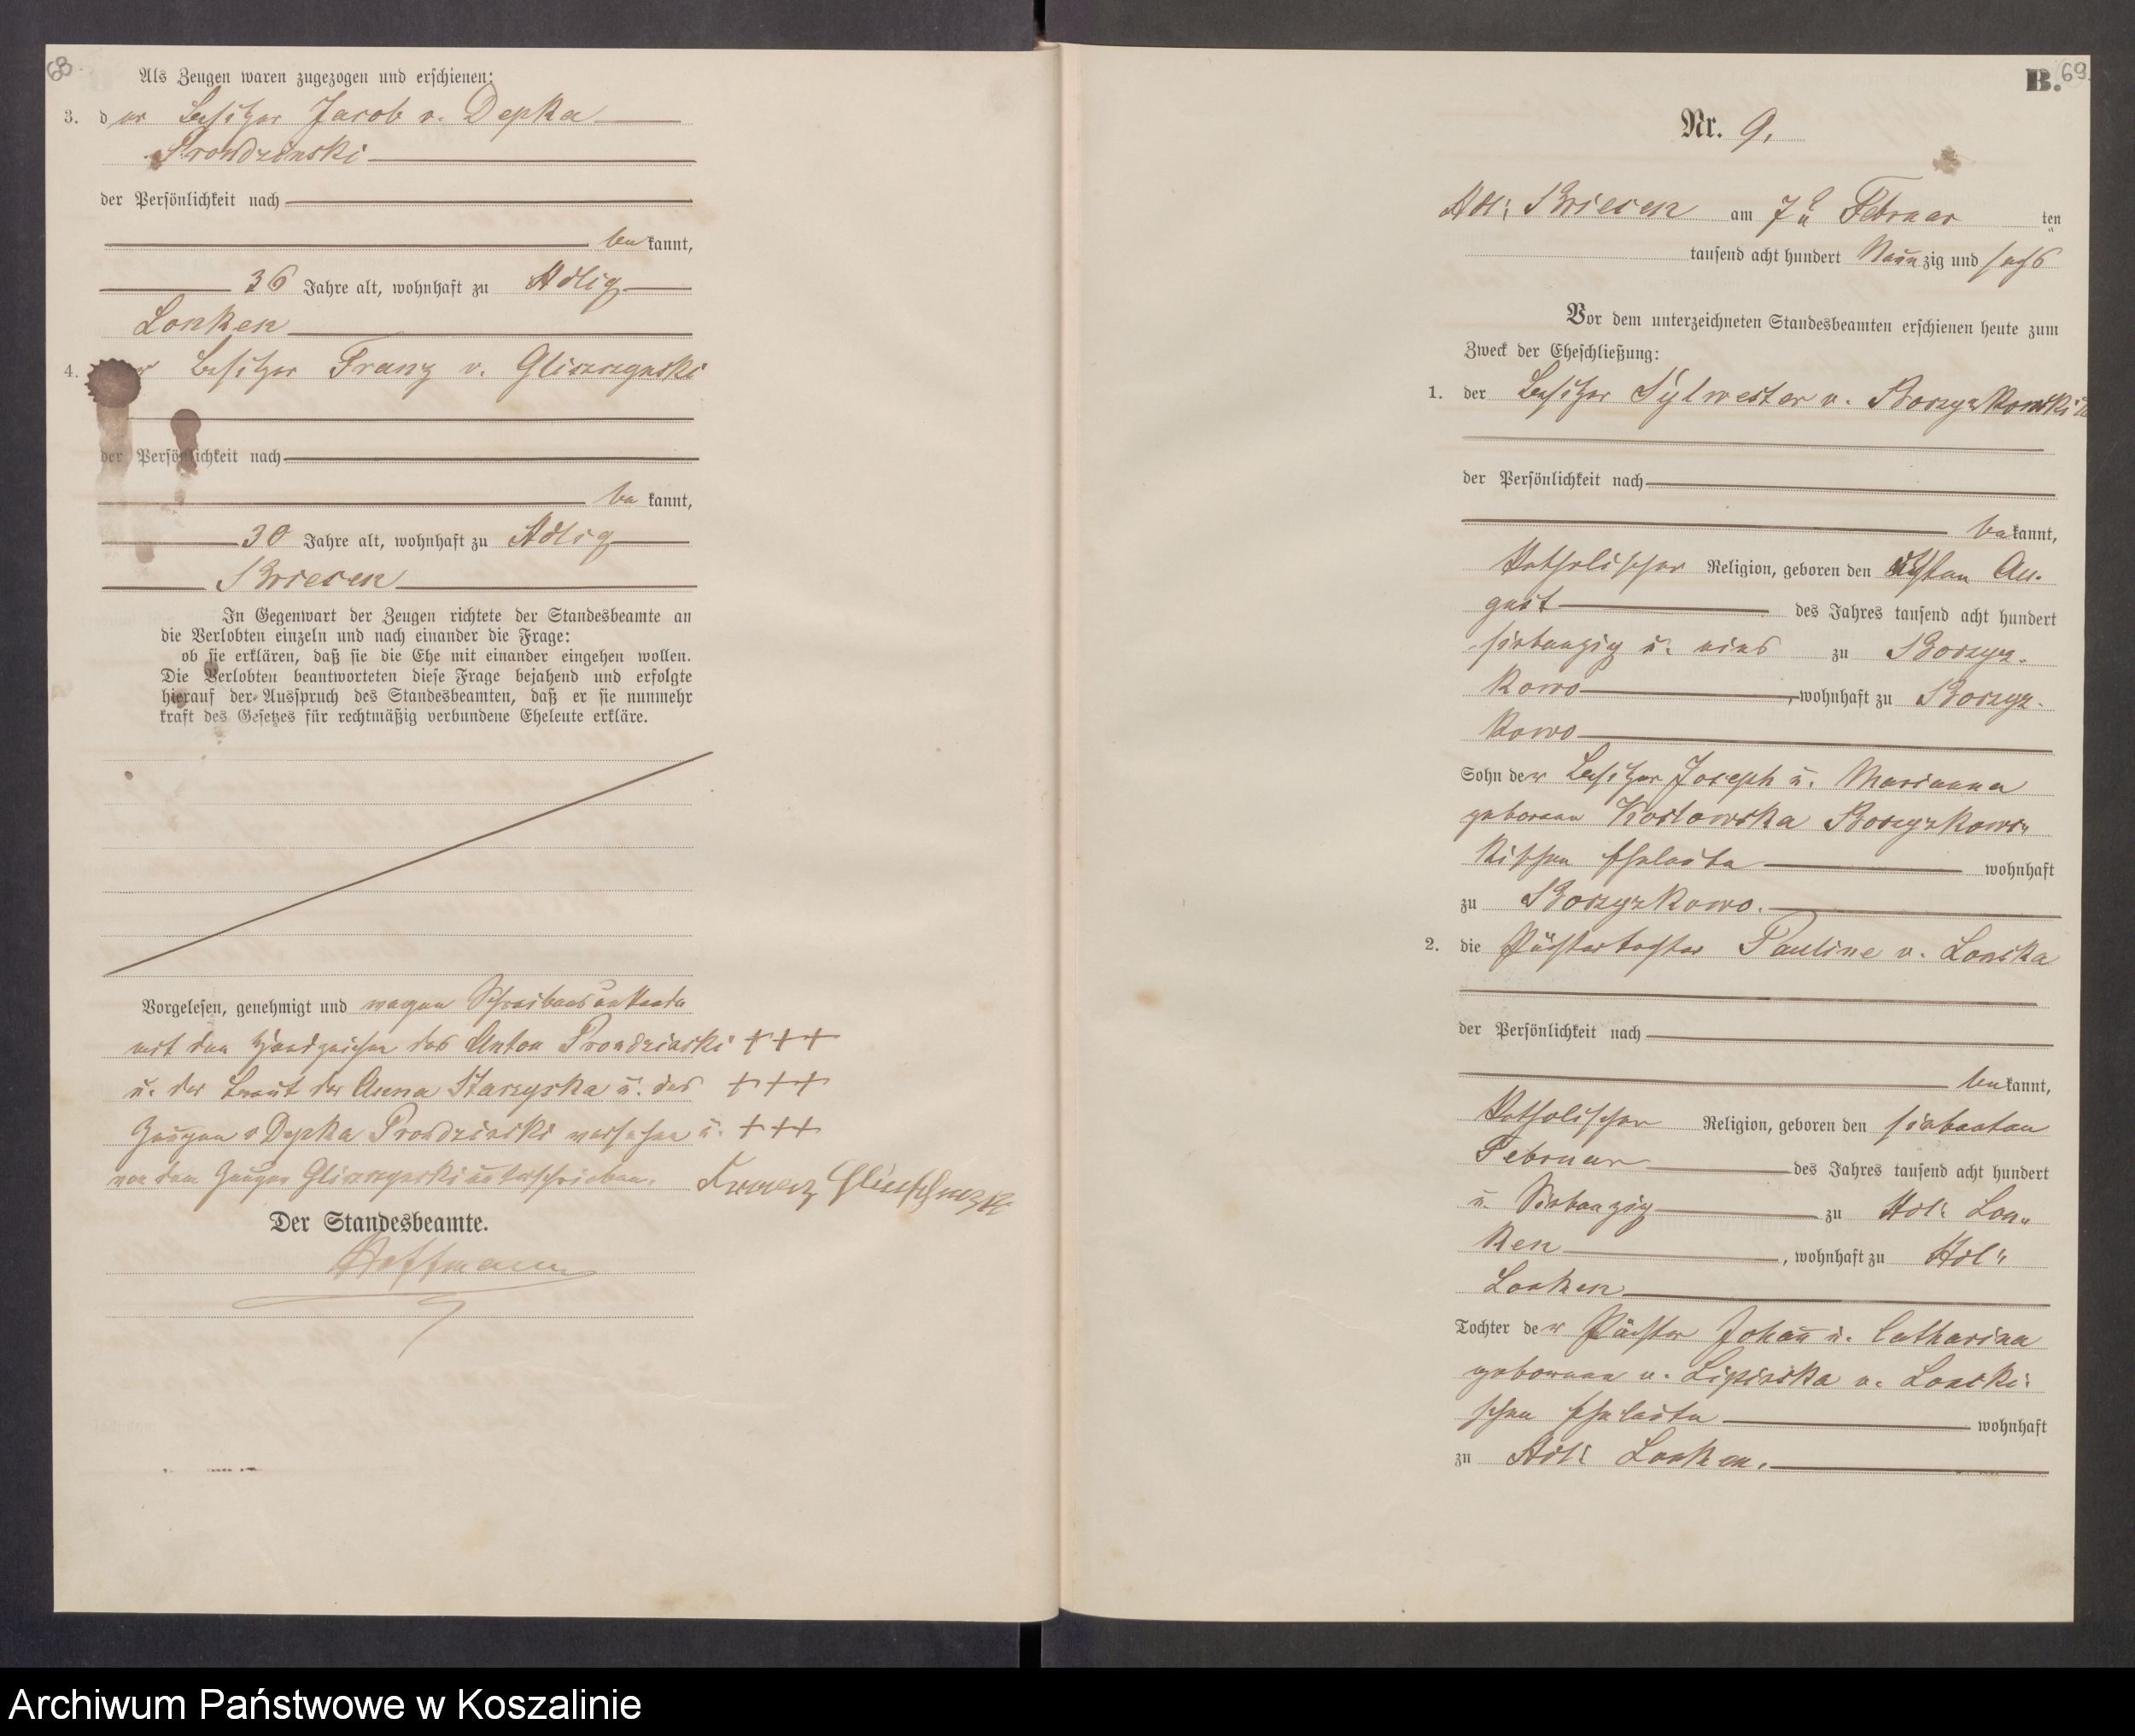 68
Als Zeugen waren zugezogen und erschienen:
3. der Besitzer Jacob v. Depka
Prondzinski
der Persönlichkeit nach
bekannt,
36 Jahre alt, wohnhaft zu Adlig
Lonken
4. der Besitzer Franz v. Gliszczynski
der Persönlichkeit nach
bekannt,
30 Jahre alt, wohnhaft zu Adlig
Briesen
In Gegenwart der Zeugen richtete der Standesbeamte an
die Verlobten einzeln und nach einander die Frage:
ob sie erklären, daß sie die Ehe mit einander eingehen wollen.
Die Verlobten beantworteten diese Frage bejahend und erfolgte
hierauf der Ausspruch des Standesbeamten, daß er sie nunmehr
kraft des Gesetzes für rechtmäßig verbundene Eheleute erkläre.
Vorgelesen, genehmigt und wegen Schreibensunkunde
mit den Handzeichen des Anton Prondzinski +++
u. der Braut der Anna Starzyska u. des +++
Zeugen v Depka Prondzinski versehen u. +++
von dem Zeugen Gliszczynski unterschrieben. Franz
Der Standesbeamte.
Hoffmann
B. 69
Nr. 9.
Adl: Briesen am 7ten Februar ten
tausend acht hundert Neunzig und sechs
Vor dem unterzeichneten Standesbeamten erschienen heute zum
Zweck der Eheschließung:
1. der Besitzer Sylwester v. Borzyzkowski
der Persönlichkeit nach
bekannt,
katholischer Religion, geboren den Au-
gust des Jahres tausend acht hundert
siebenzig u. eins zu Borzyz-
kowo, wohnhaft zu Borzyz-
kowo
Sohn der Besitzer Joseph u. Marianna
geborene Koslowska Borzyzkows-
kischen Eheleute wohnhaft
zu Borzyzkowo.
2. die Pächtertochter Pauline v. Lonska
der Persönlichkeit nach
bekannt,
katholischer Religion, geboren den siebenten
Februar des Jahres tausend acht hundert
u. Siebenzig zu Adl: Lon-
ken, wohnhaft zu Adl:
Lonken
Tochter der Pächter Johann u. Catharina
geborene v. Lipinska v. Lonski-
schen Eheleute wohnhaft
zu Adl: Lonken.
Archiwum Państwowe w Koszalinie